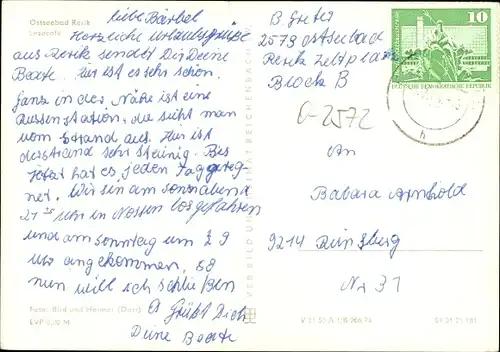 Ostseebad Rerik
Lesecafé
liebe Bärbel
Herzliche Urlaubsgrüße
aus Rerik sendet Dir Deine
Beate. Hir ist es sehr schön.
Ganz in der Nähe ist eine
Russenstation, die siht man
vom Strand aus. Hir ist
der Strand sehr steinig. Bis
jetzt hat es jeden Tag gereg-
net. Wir sin am Sonnabend
21 25 Uhr in Nossen losgefahren
und am Sonntag um 29
angekommen. So
nun will ich schließen
Es Grüßt Dich
Deine Beate
Foto: Bild und Heimat (Darr)
EVP 0,20 M
VERLAG BILD UND HEIMAT REICHENBACH
V 11 50 A 1/B 266/74
01 01 21 181
B. Greter
2573 Ostseebad
Rerik Zeltplatz
Block B
O-2572
10
DEUTSCHE DEMOKRATISCHE REPUBLIK
h
An
Babara Arnhold
9214 Reinsberg
Nr 31